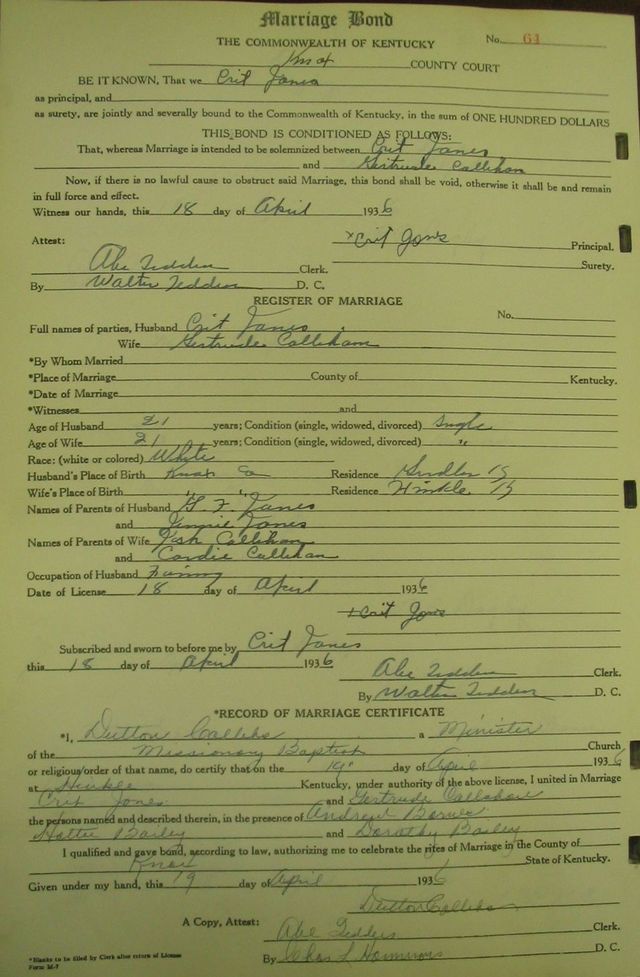 Marriage Bond
THE COMMONWEALTH OF KENTUCKY No. 64
Knox COUNTY COURT
BE IT KNOWN, That we Crit Jones
as principal, and
as surety, are jointly and severally bound to the Commonwealth of Kentucky, in the sum of ONE HUNDRED DOLLARS
THIS BOND IS CONDITIONED AS FOLLOWS:
That, whereas Marriage is intended to be solemnized between Crit Jones
and Gertrude Calliham
Now, if there is no lawful cause to obstruct said Marriage, this bond shall be void, otherwise it shall be and remain
in full force and effect.
Witness our hands, this 18 day of April 1936
x Crit Jones Principal.
Attest:
Surety.
Abe Tedders Clerk.
By Walter Tedders D. C.
REGISTER OF MARRIAGE
No.
Full names of parties, Husband Crit Jones
Wife Gertrude Calliham
*By Whom Married
*Place of Marriage County of Kentucky.
*Date of Marriage
*Witnesses and
Age of Husband 21 years; Condition (single, widowed, divorced) Single
Age of Wife 21 years; Condition (single, widowed, divorced) "
Race: (white or colored) White
Husband's Place of Birth Knox Co Residence Ky
Wife's Place of Birth " " Residence Hinkle, Ky
Names of Parents of Husband Jones
and Jennie Jones
Names of Parents of Wife Calliham
and Cordie Calliham
Occupation of Husband
Date of License 18 day of April 1936
x Crit Jones
Subscribed and sworn to before me by Crit Jones
this 18 day of April 1936
Abe Tedders Clerk.
By Walter Tedders D. C.
*RECORD OF MARRIAGE CERTIFICATE
*I, Dutton a Minister
of the Missionary Baptist Church
or religious order of that name, do certify that on the 19" day of April 1936
at Hinkle Kentucky, under authority of the above license, I united in Marriage
Crit Jones and Gertrude Callahan
the persons named and described therein, in the presence of Andrew
Hattie Bailey and Dorothy Bailey
I qualified and gave bond, according to law, authorizing me to celebrate the rites of Marriage in the County of
Knox State of Kentucky.
Given under my hand, this 19 day of April 1936
Dutton
A Copy, Attest: Abe Tedders Clerk.
By Chas L D. C.
*Blanks to be filled by Clerk after return of License
Form M-7